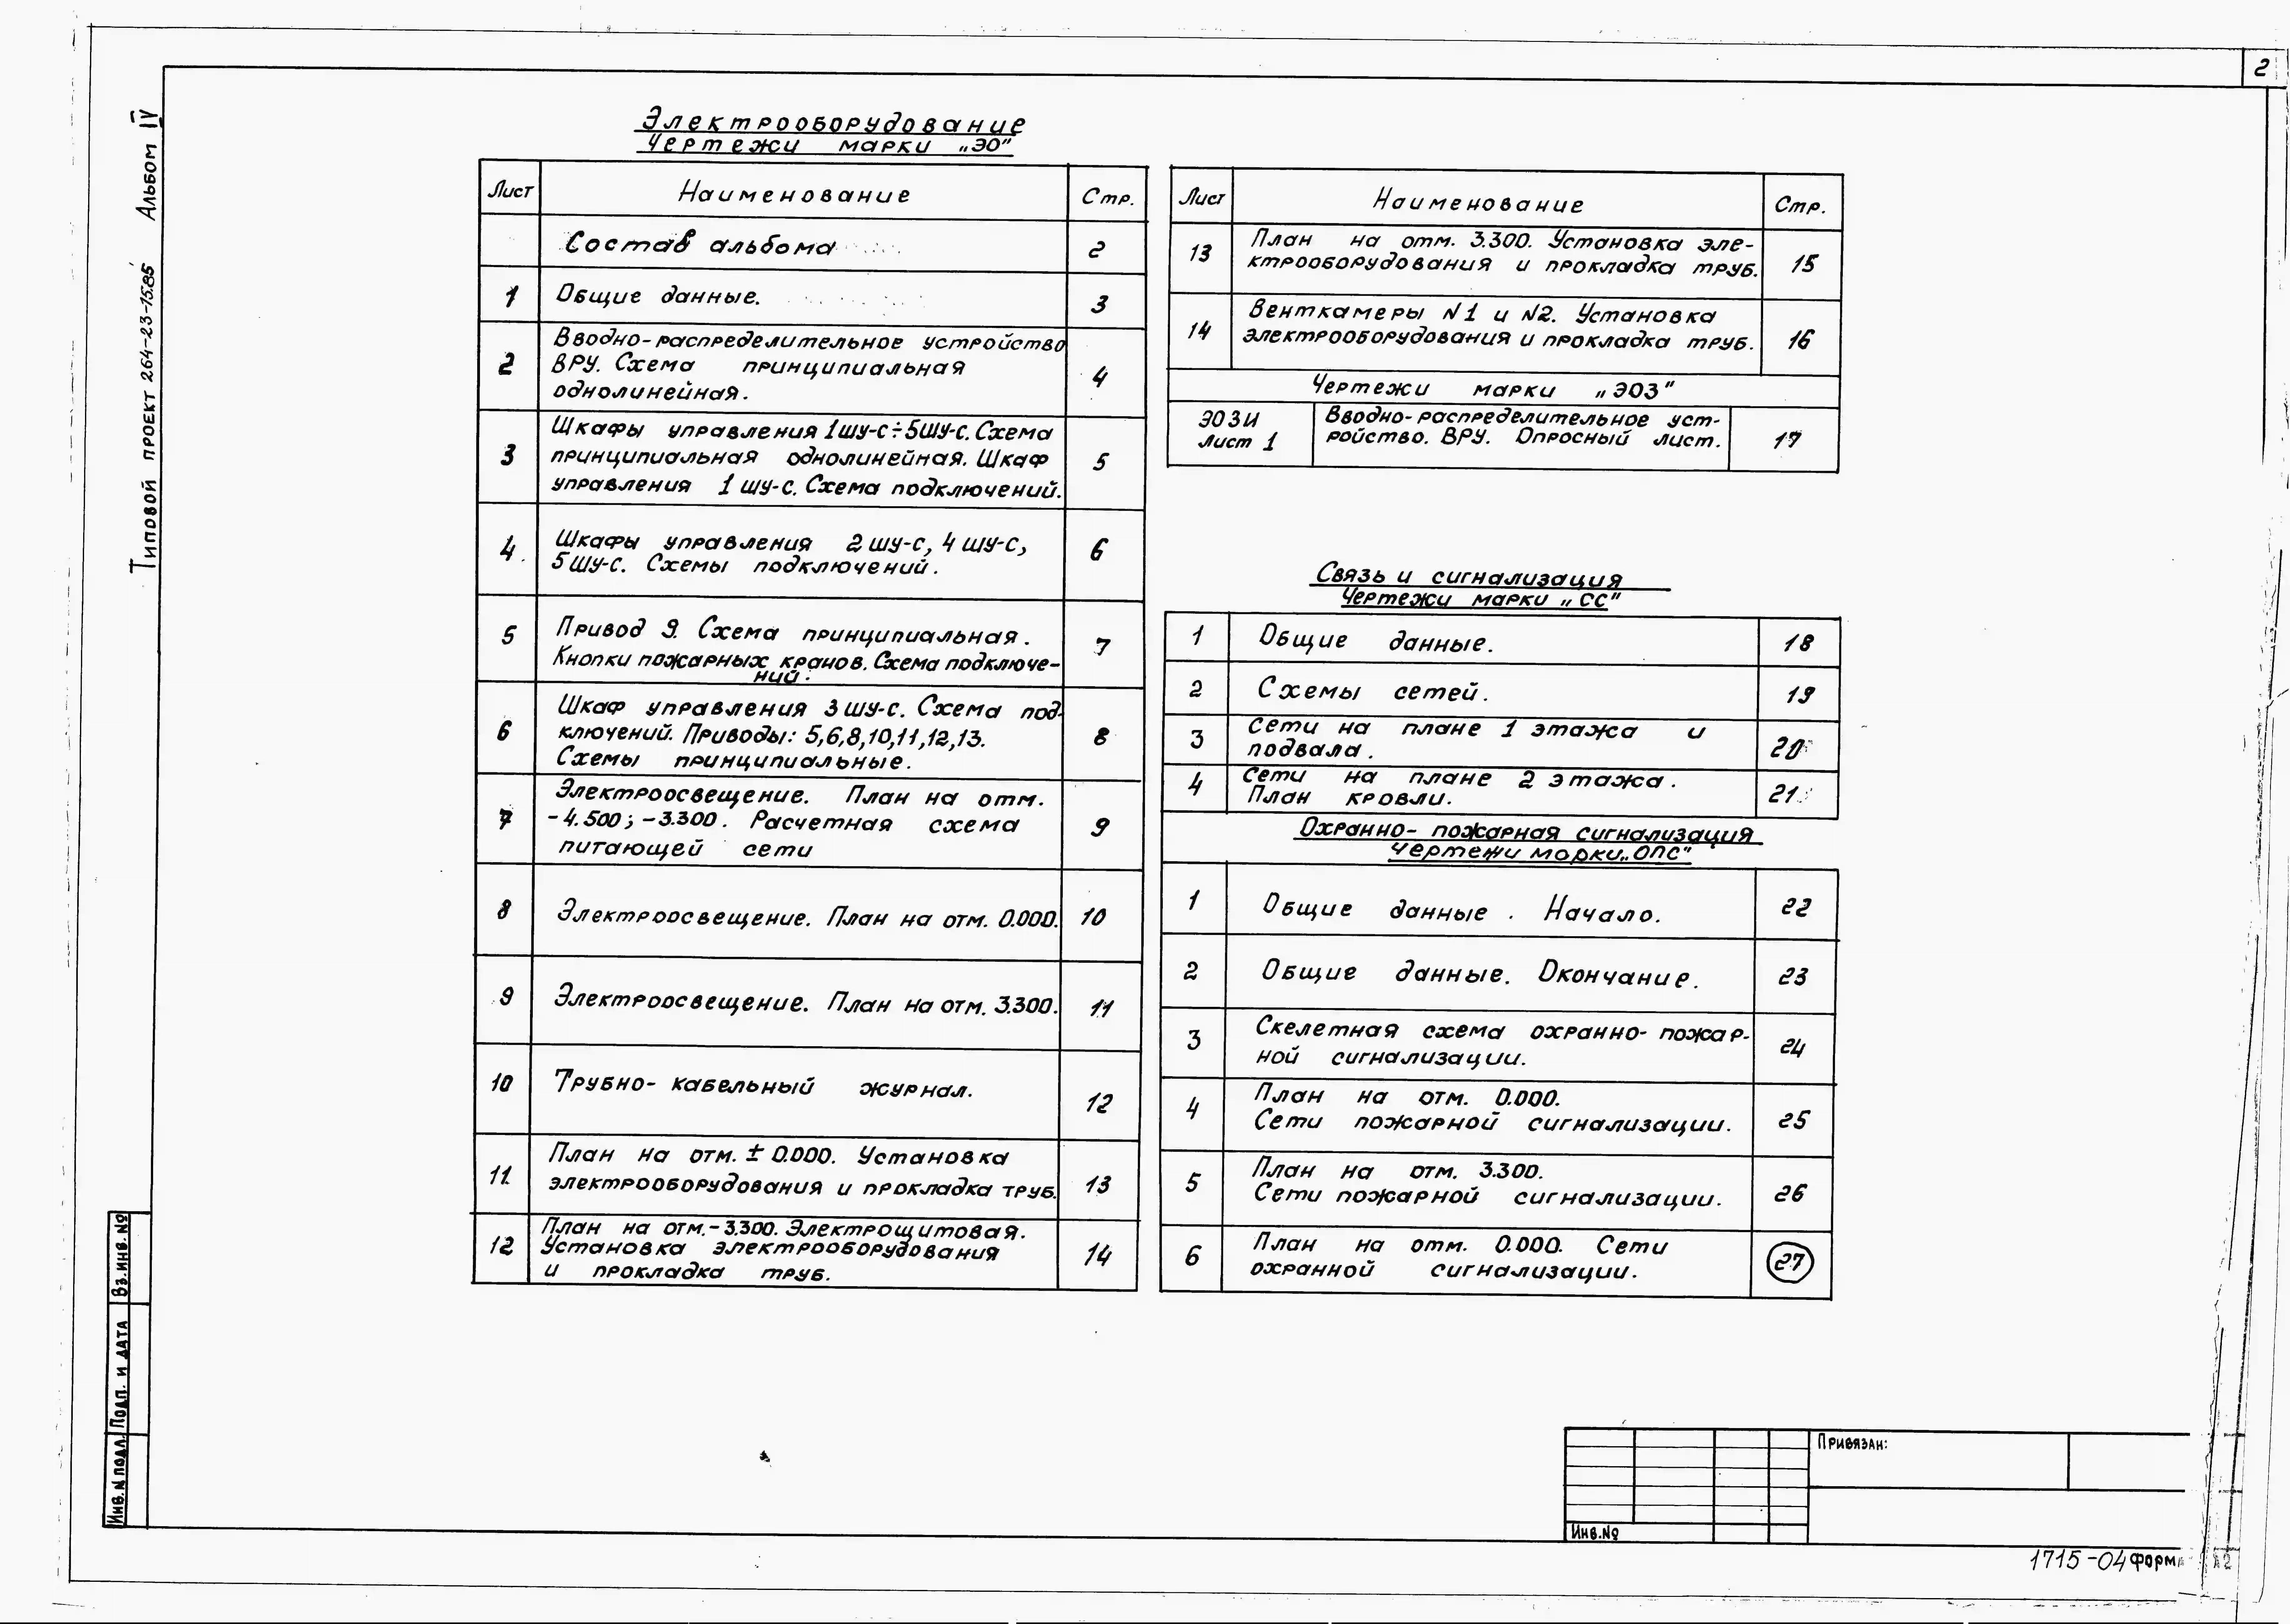 2
Типовой проект 264-23-15.85 Альбом IV
Электрооборудование
Чертежи марки „ЭО"
Лист Наименование Стр.
Состав альбома 2
1 Общие данные. 3
2 Вводно-распределительное устройство
ВРУ. Схема принципиальная
однолинейная. 4
3 Шкафы управления 1ШУ-С÷5ШУ-С. Схема
принципиальная однолинейная. Шкаф
управления 1 ШУ-С. Схема подключений. 5
4. Шкафы управления 2 ШУ-С, 4 ШУ-С,
5 ШУ-С. Схемы подключений. 6
5 Привод 9. Схема принципиальная.
Кнопки пожарных кранов. Схема подключе-
ний. 7
6 Шкаф управления 3 ШУ-С. Схема под-
ключений. Приводы: 5,6,8,10,11,12,13.
Схемы принципиальные. 8
7 Электроосвещение. План на отм.
-4.500; -3.300. Расчетная схема
питающей сети 9
8 Электроосвещение. План на отм. 0.000. 10
9 Электроосвещение. План на отм. 3.300. 11
10 Трубно-кабельный журнал. 12
11. План на отм. ± 0.000. Установка
электрооборудования и прокладка труб. 13
12 План на отм.-3.300. Электрощитовая.
Установка электрооборудования
и прокладка труб. 14
Лист Наименование Стр.
13 План на отм. 3.300. Установка эле-
ктрооборудования и прокладка труб. 15
14 Венткамеры N1 и N2. Установка
электрооборудования и прокладка труб. 16
Чертежи марки „ЭОЗ"
ЭОЗИ
лист 1
Вводно-распределительное уст-
ройство. ВРУ. Опросный лист. 17
Связь и сигнализация
Чертежи марки „СС"
1 Общие данные. 18
2 Схемы сетей. 19
3 Сети на плане 1 этажа и
подвала. 20
4 Сети на плане 2 этажа.
План кровли. 21
Охранно-пожарная сигнализация
Чертежи марки „ОПС"
1 Общие данные. Начало. 22
2 Общие данные. Окончание. 23
3 Скелетная схема охранно-пожар-
ной сигнализации. 24
4 План на отм. 0.000.
Сети пожарной сигнализации. 25
5 План на отм. 3.300.
Сети пожарной сигнализации. 26
6 План на отм. 0.000. Сети
охранной сигнализации. 27
Инв.N подл. Подп. и дата Вз.инв.№
Привязан:
Инв.№
1715-04 Форма А2